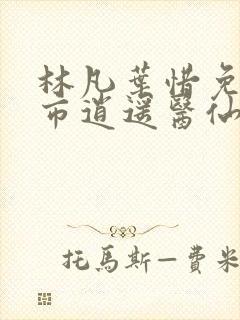 林凡葉惜免
市逍遥醫仙
托馬斯—費米